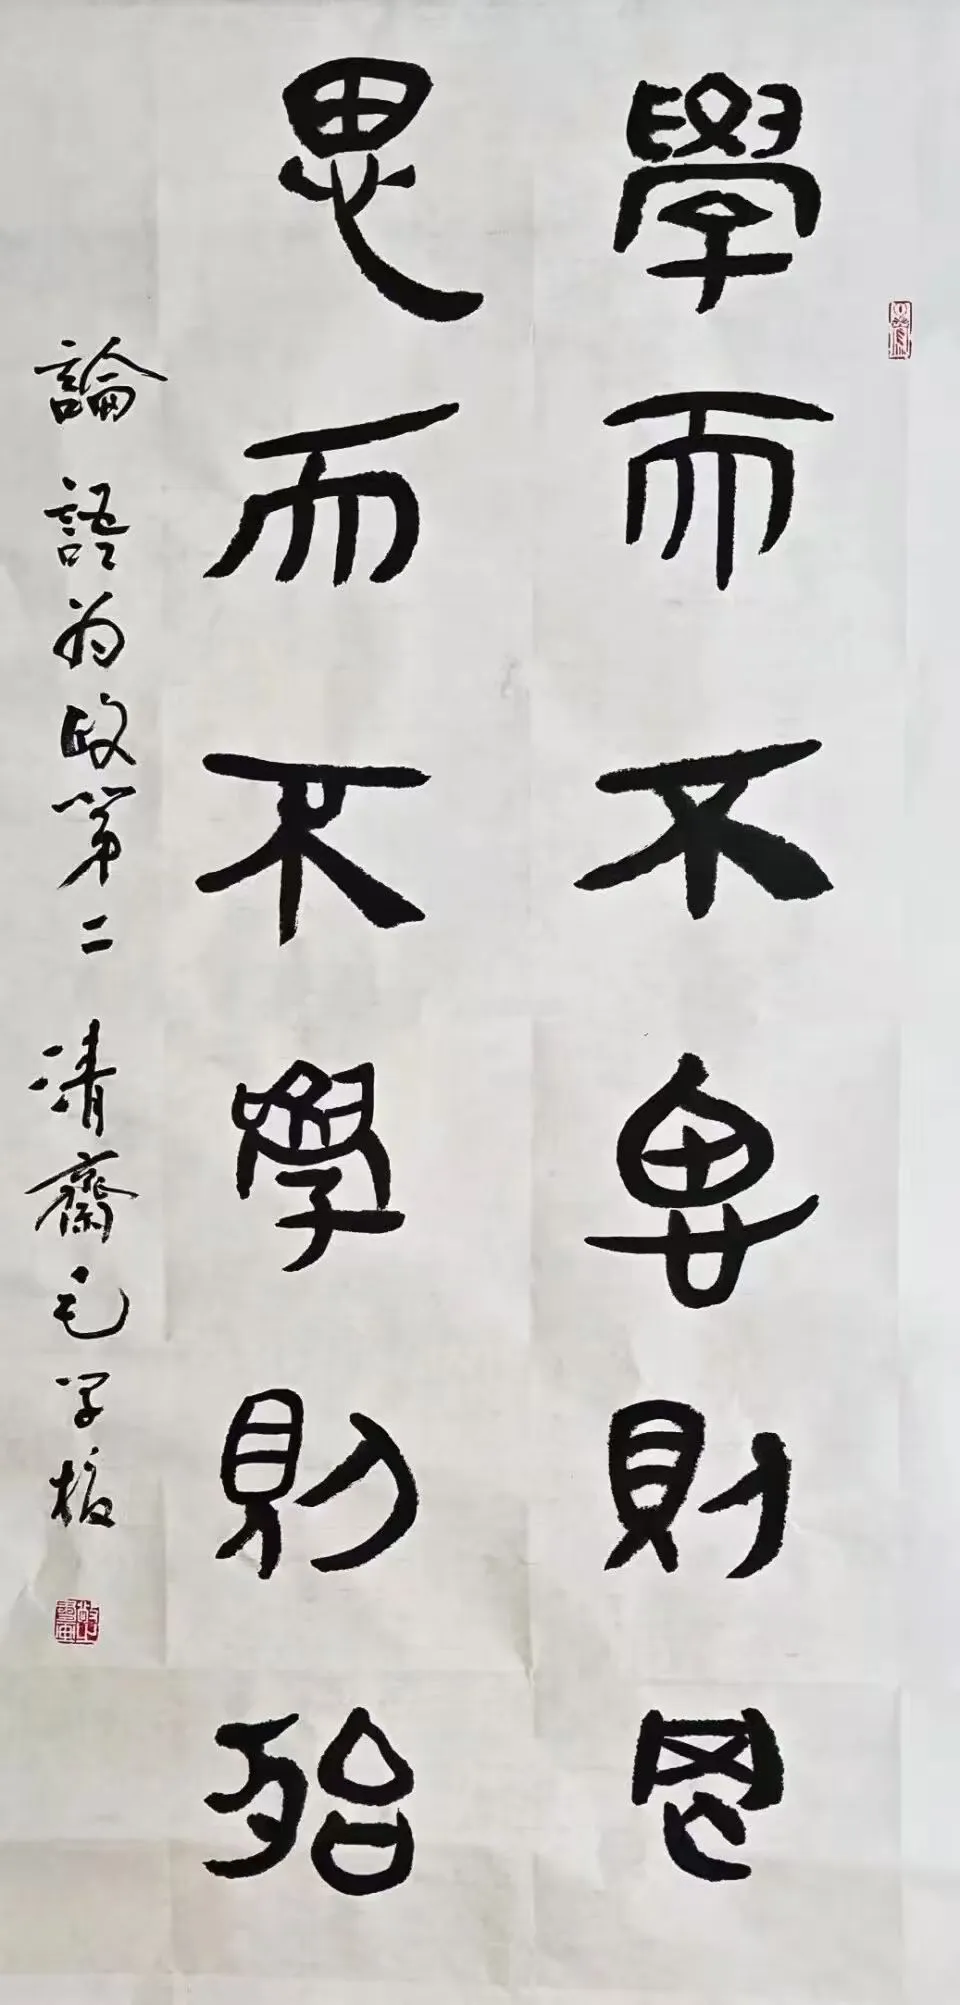 學而不思則罔
思而不學則殆
論語为政第二 清齋毛学